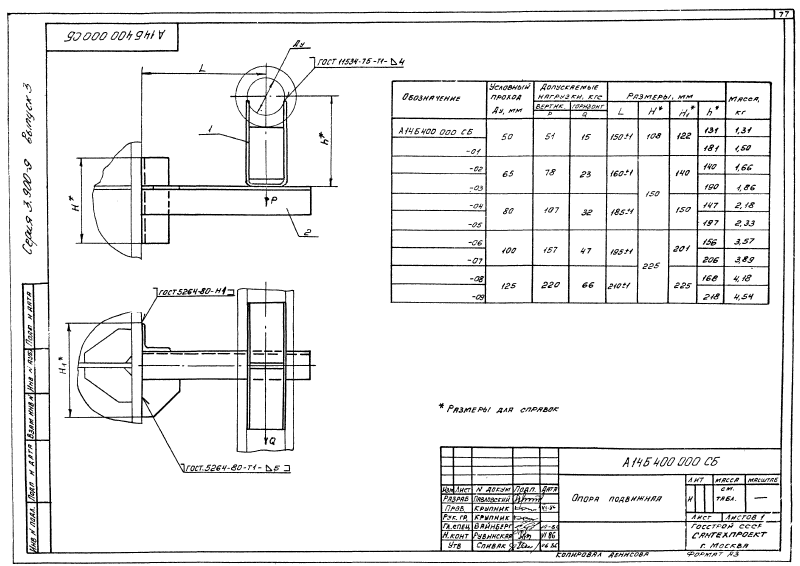 77
А14Б400 000 СБ
Серия 3.900-9 Выпуск 3
L
Ду
ГОСТ 11534-75-Т1-⊿4
1
h*
H*
P
2
ГОСТ.5264-80-Н1
H₁*
Q
ГОСТ.5264-80-Т1-⊿Б
Обозначение | Условный проход Ду, мм | Допускаемые нагрузки, кгс | Размеры, мм | Масса, кг
Вертик. P | Горизонт Q | L | H* | H₁* | h*
А14Б400 000 СБ | 50 | 51 | 15 | 150±1 | 108 | 122 | 131 | 1,31
-01 | 181 | 1,50
-02 | 65 | 78 | 23 | 160±1 | 150 | 140 | 140 | 1,66
-03 | 190 | 1,86
-04 | 80 | 107 | 32 | 185±1 | 150 | 147 | 2,18
-05 | 197 | 2,33
-06 | 100 | 157 | 47 | 195±1 | 225 | 201 | 156 | 3,57
-07 | 206 | 3,89
-08 | 125 | 220 | 66 | 210±1 | 225 | 168 | 4,18
-09 | 218 | 4,54
* Размеры для справок
Инв. N подл. Подп. и дата Взам инв. N Инв. N дубл. Подп. и дата
А14Б400 000 СБ
Изм Лист N докум Подп. Дата
Разраб Павловский
Пров. Крупник
Рук. гр. Крупник
Гл. спец Вайнберг
Н.конт Рувинская
Утв Спивак
Опора подвижная
Лит Масса Масштаб
И см. табл. —
Лист Листов 1
Госстрой СССР
Сантехпроект
г. Москва
Копировал Денисова Формат А3